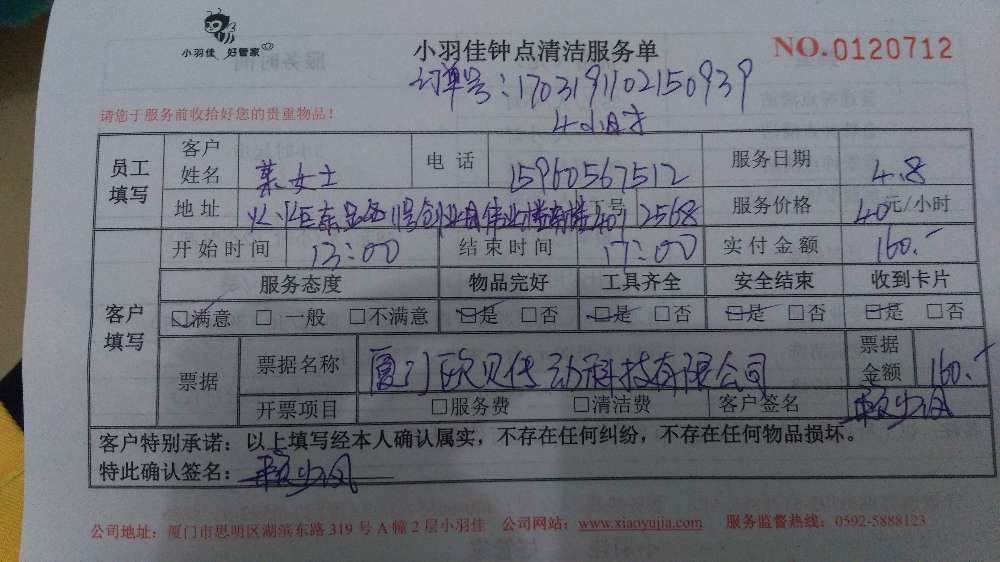 小羽佳 好管家
小羽佳钟点清洁服务单
NO.0120712
订单号:1703191102150939
4小时
请您于服务前收拾好您的贵重物品!
员工填写 客户姓名 女士 电话 15960567512 服务日期 4.8
地址 火炬东 创业园伟业楼南楼401 工号 2568 服务价格 40元/小时
开始时间 13:00 结束时间 17:00 实付金额 160.-
客户填写 服务态度 物品完好 工具齐全 安全结束 收到卡片
☑满意 □一般 □不满意 ☑是 □否 ☑是 □否 ☑是 □否 ☑是 □否
票据 票据名称 厦门欧贝传动科技有限公司 票据金额 160.-
开票项目 □服务费 □清洁费 客户签名
客户特别承诺:以上填写经本人确认属实,不存在任何纠纷,不存在任何物品损坏。
特此确认签名:
公司地址:厦门市思明区湖滨东路319号A幢2层小羽佳 公司网站:www.xiaoyujia.com 服务监督热线:0592-5888123